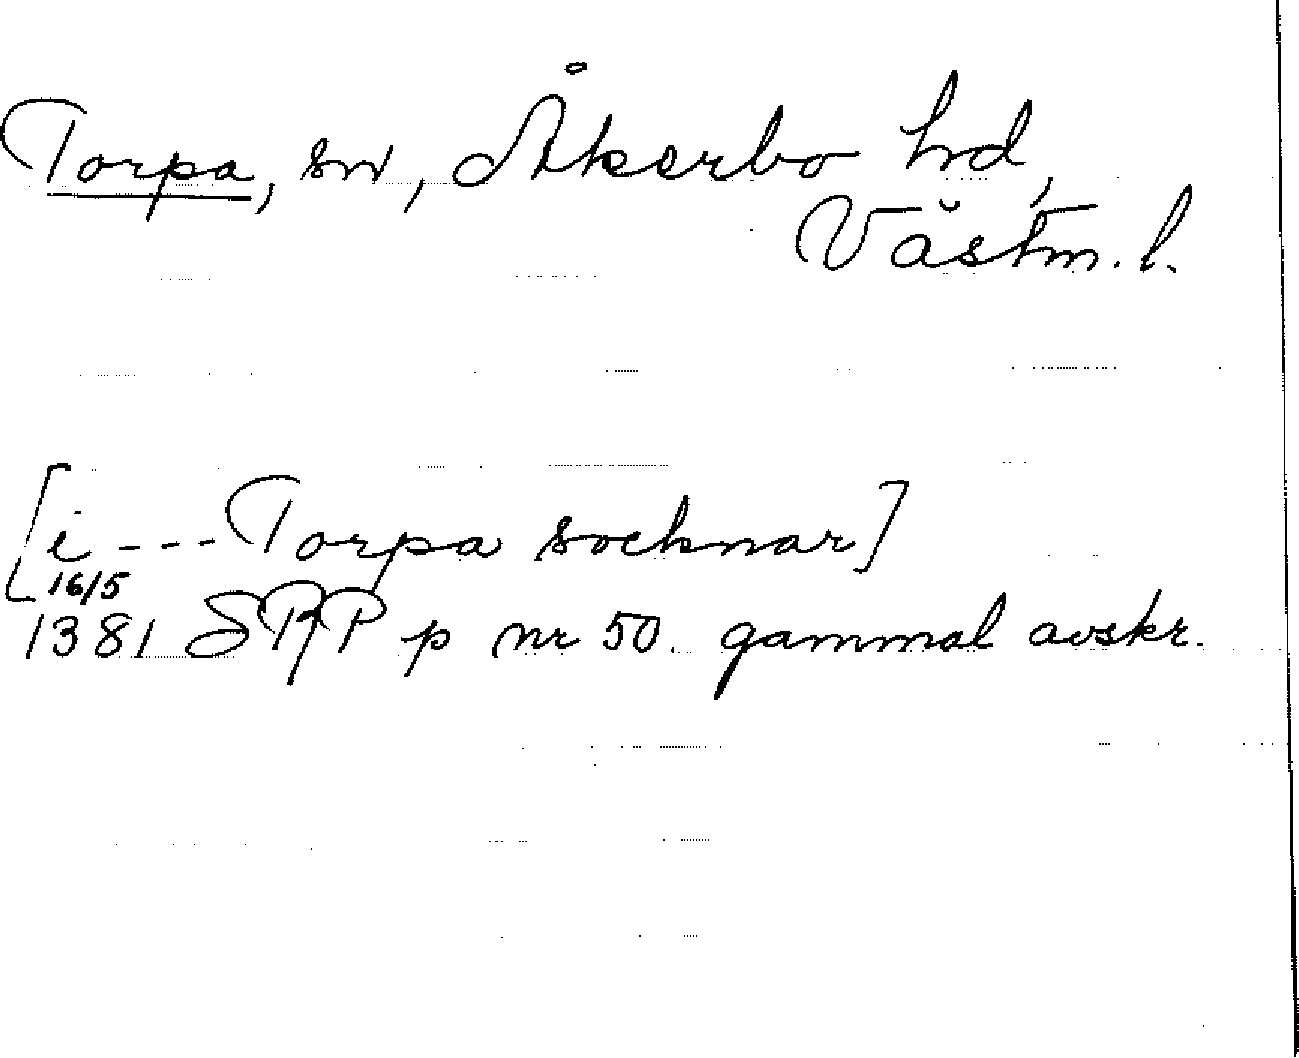 Torpa, sn, Åkerbo hd,
Västm. l.
[i --- Torpa socknar]
16/5
1381 SRP p nr 50. gammal avskr.